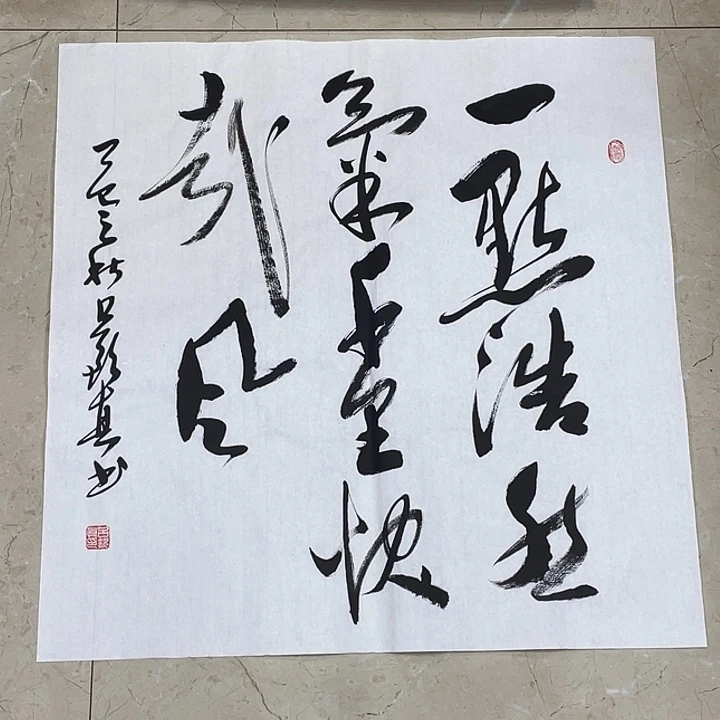 一點浩然
氣千里快
哉風
乙巳之秋吕真书